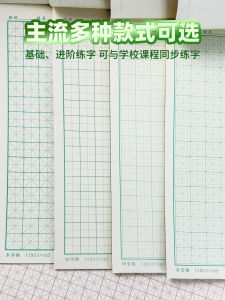 主流多种款式可选
基础、进阶练字 可与学校课程同步练字
米字格 11X15=165
田字格 11X15=165
11X15=165
11X15=165